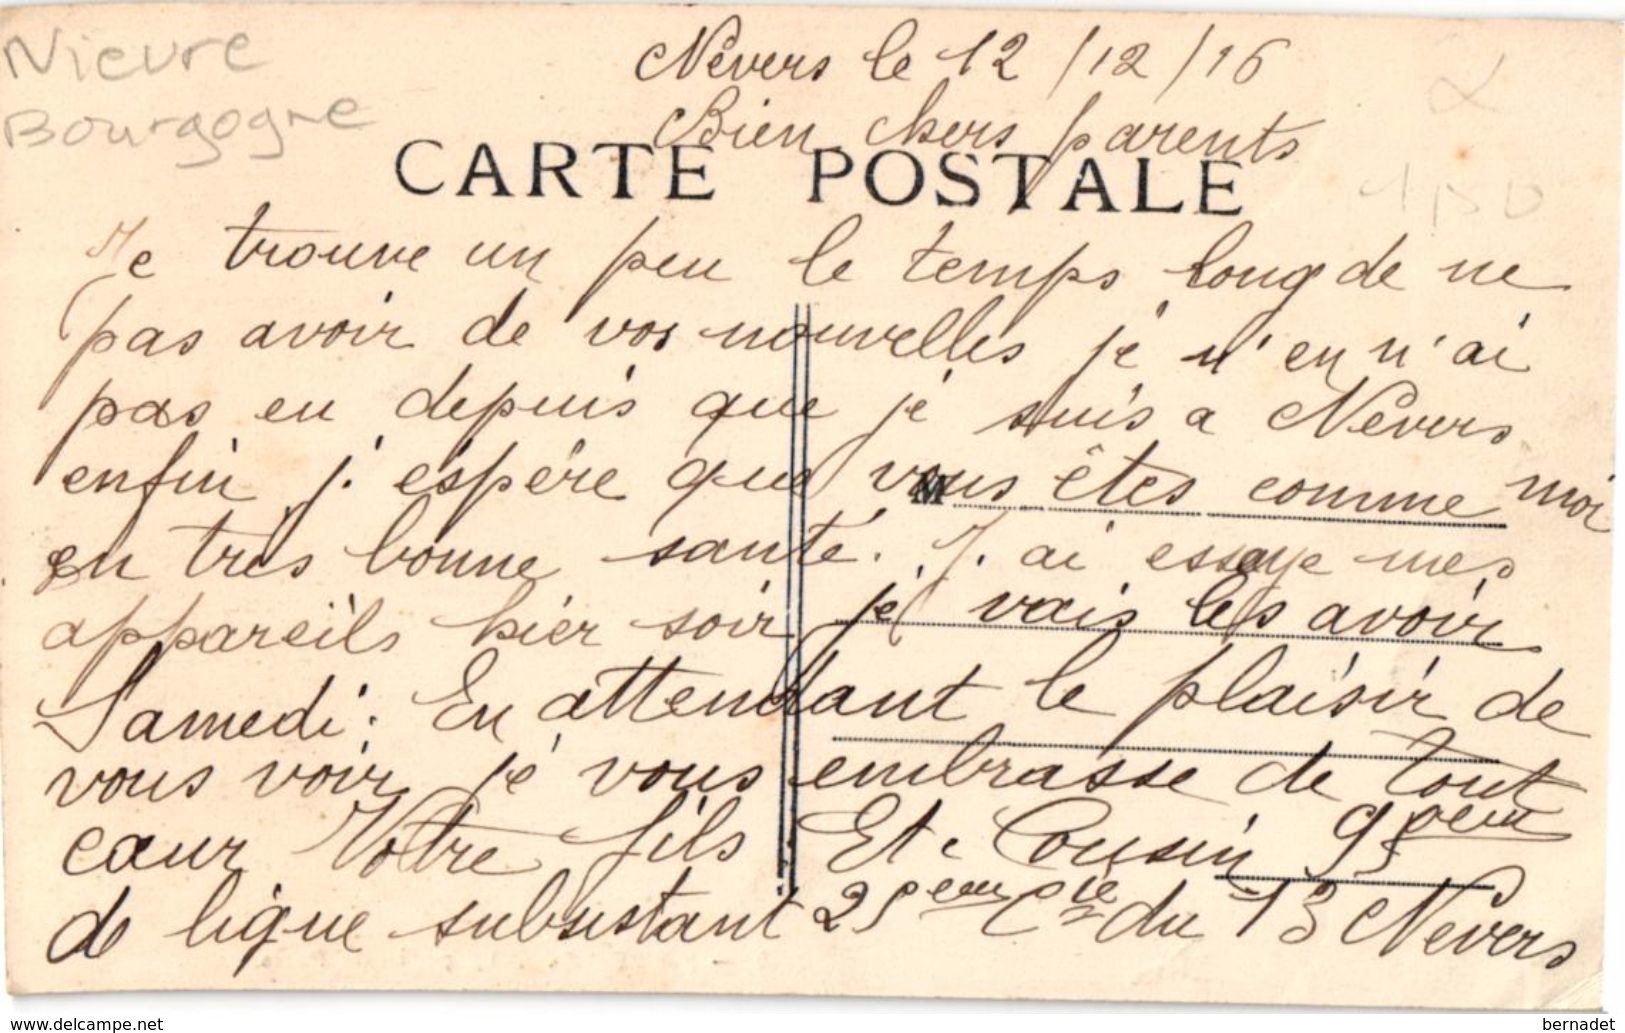 Nievre
Bourgogne
Nevers le 12/12/16
Bien chers parents
CARTE POSTALE
Je trouve un peu le temps long de ne
pas avoir de vos nouvelles je n'en n'ai
pas eu depuis que je suis a Nevers
enfin j'éspére que vous êtes comme moi
M
en très bonne santé. J'ai essaye mes
appareils hier soir je vais les avoir
Samedi. En attendant le plaisir de
vous voir je vous embrasse de tout
cœur Votre fils Et. Cousin 95eme
de ligne subsistant 25eme Cie du 13 Nevers
www.delcampe.net
bernadet